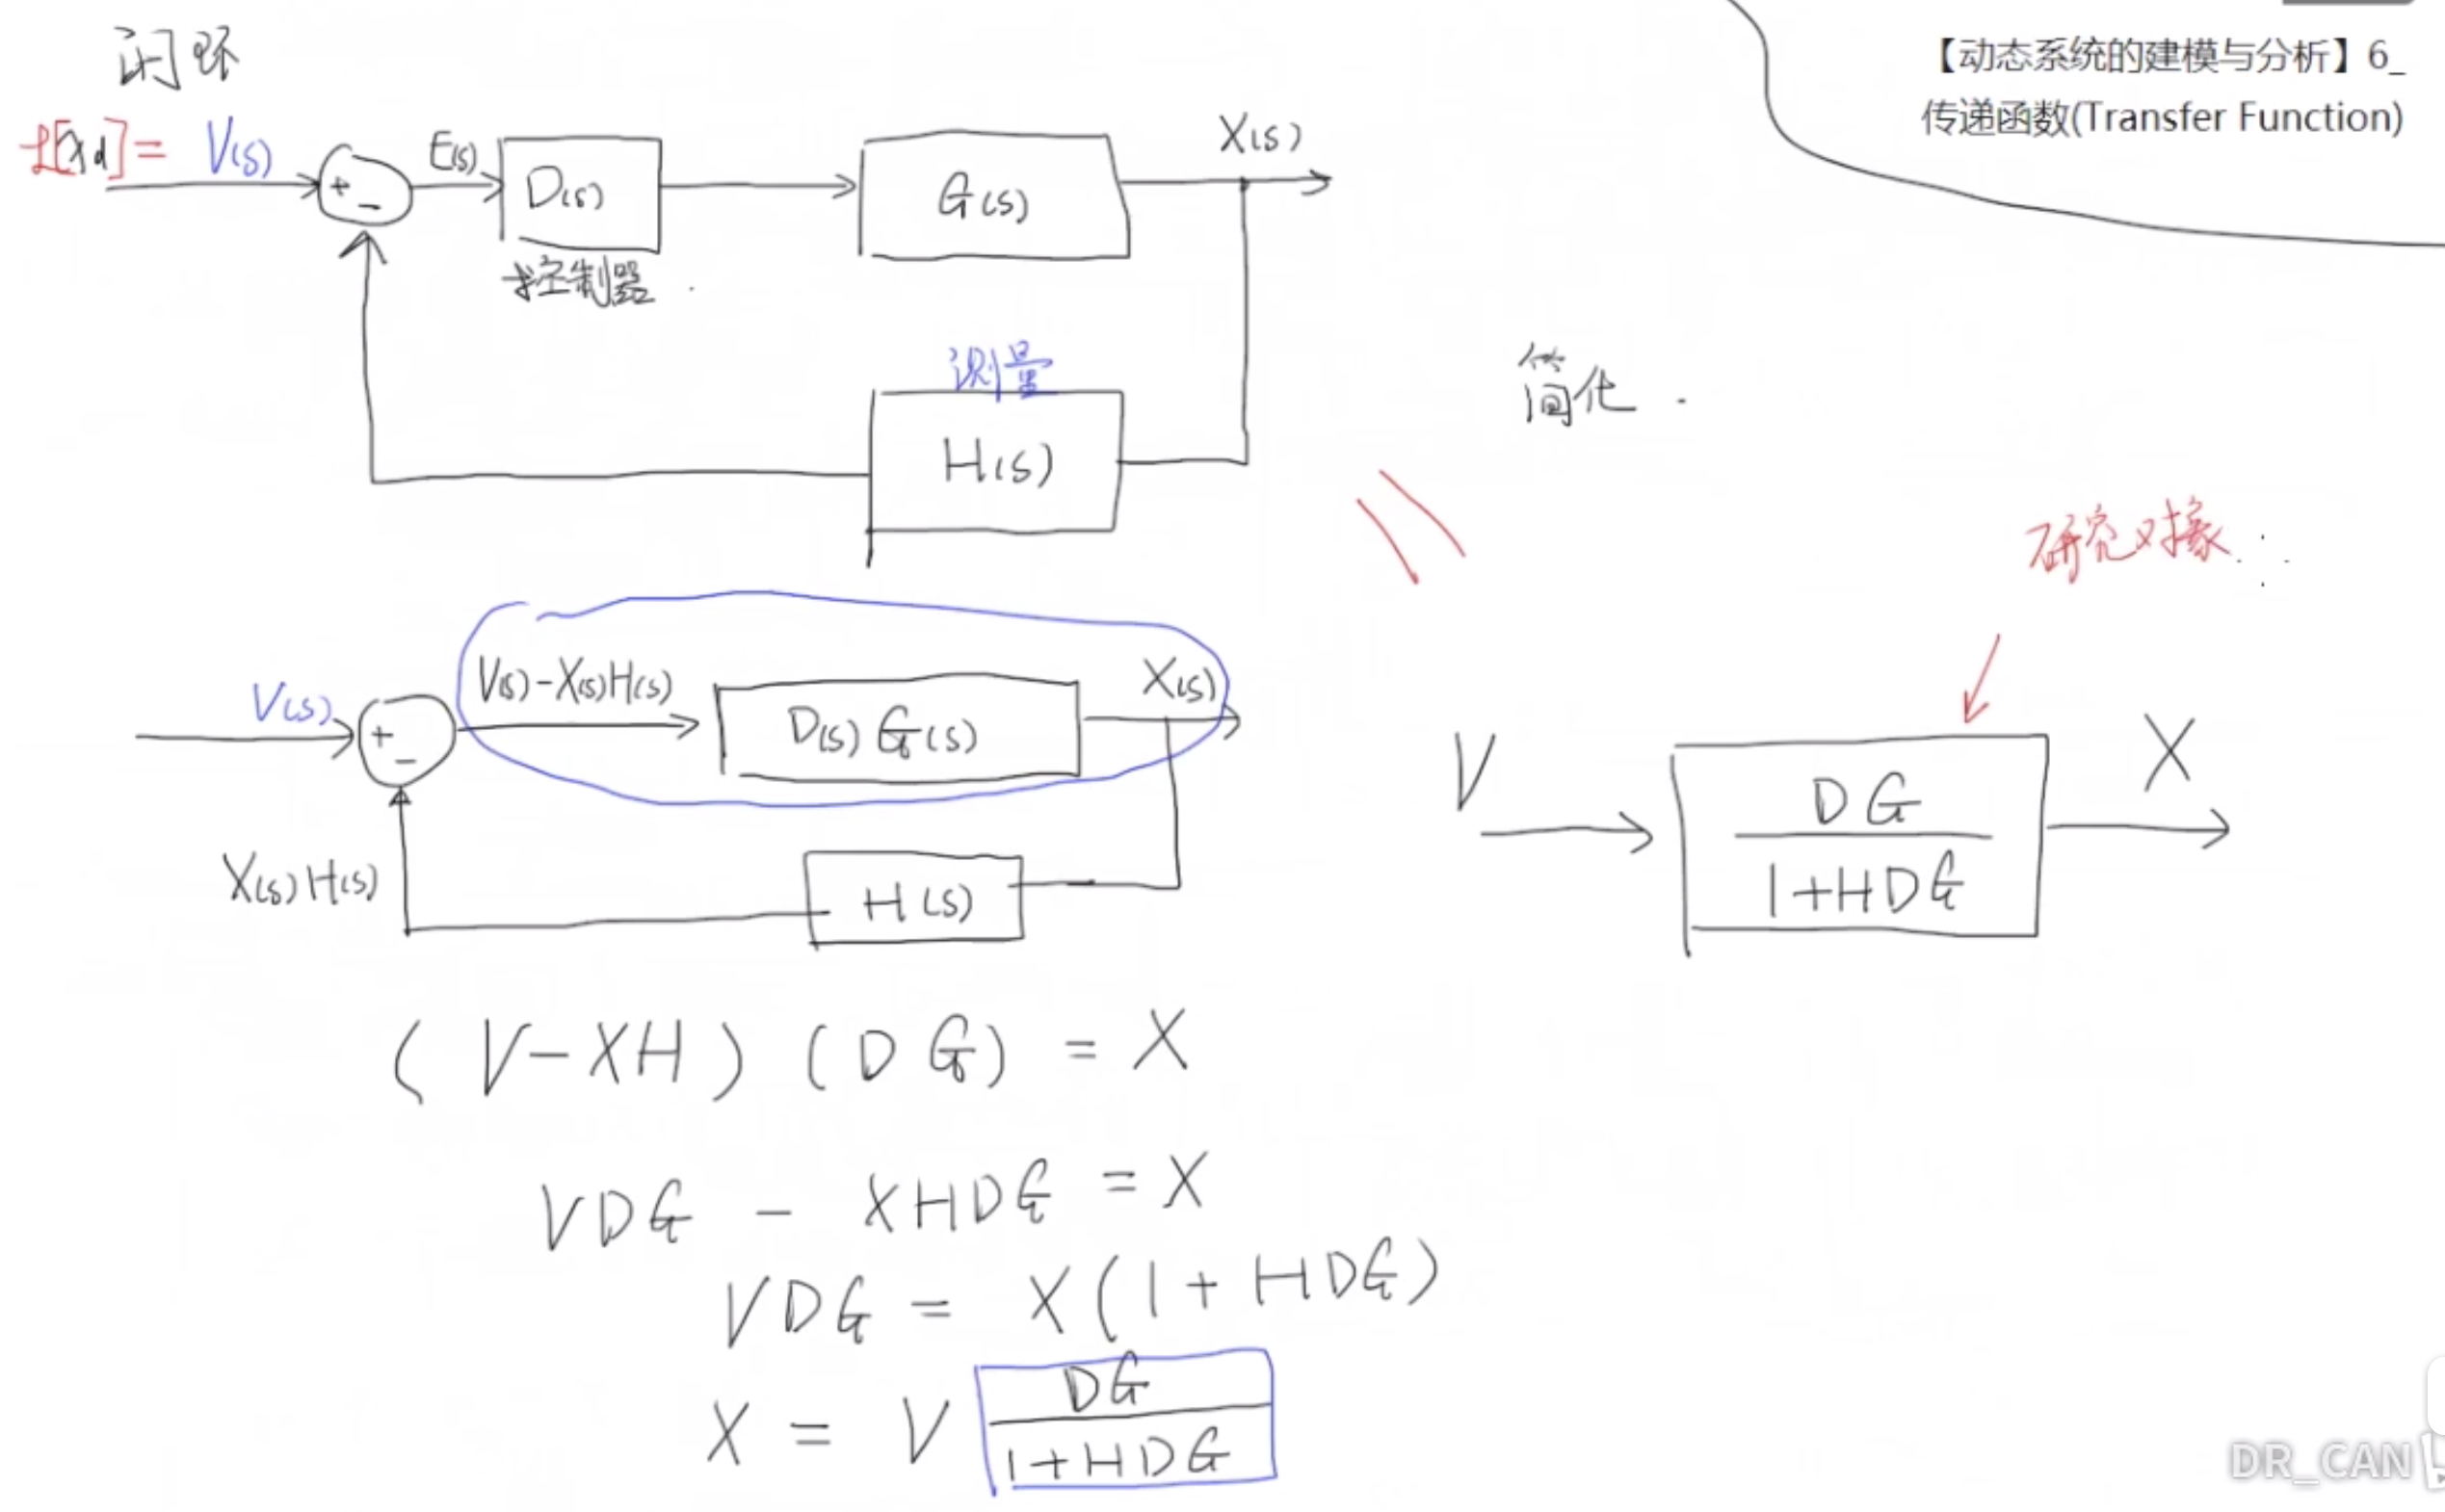 闭环
【动态系统的建模与分析】6_
传递函数(Transfer Function)
ℒ[xd] = V(s)
+
-
E(s)
D(s)
G(s)
X(s)
控制器
测量
H(s)
简化
研究对象
V(s)
+
-
V(s)-X(s)H(s)
D(s) G(s)
X(s)
X(s)H(s)
H(s)
V
DG
1+HDG
X
(V-XH)(DG) = X
VDG - XHDG = X
VDG = X(1+HDG)
X = V DG
1+HDG
DR_CAN